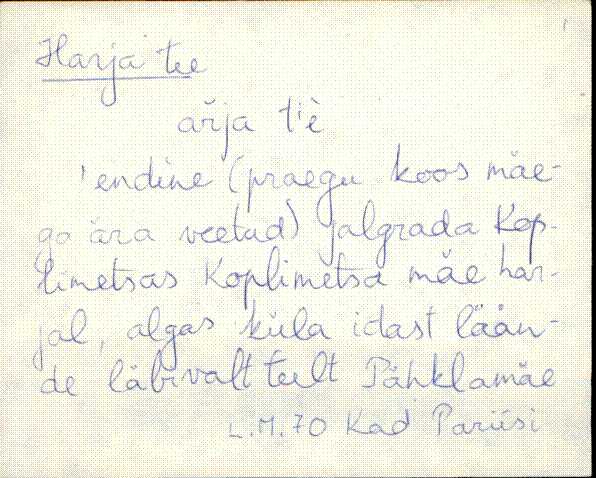 Harja tee
ărja tiè
'endine (praegu koos mäe-
ga ära veetud) jalgrada Kop-
limetsas Koplimetsa mäe har-
jal, algas küla idast lään-
de läbivalt teelt Pähklamäe
L.M. 70 Kad Pariisi